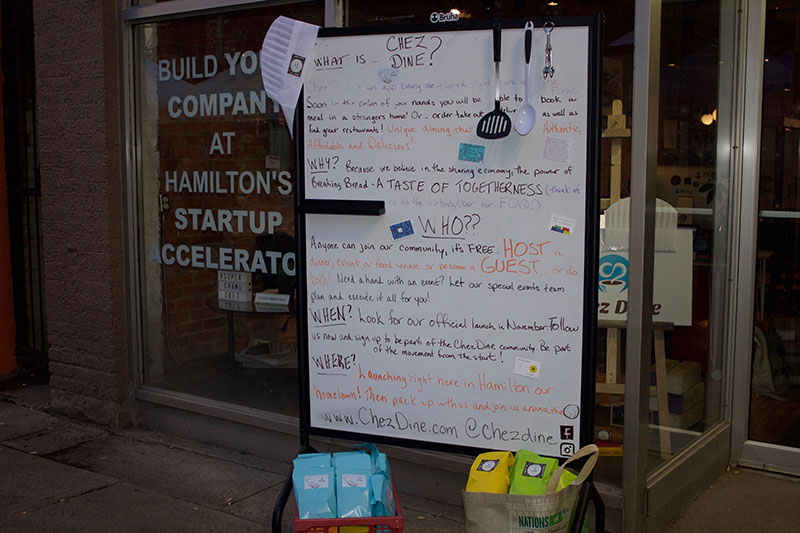 Bruha
BUILD YO
COMPAN
AT
HAMILTON'S
STARTUP
ACCELERATO
WHAT IS... CHEZ DINE?
Chez Dine is an app being developed right
Soon in the palm of your hands you will be able to book a
meal in a strangers home! Or... order take out as well as
find great restaurants! Unique dining that Authentic,
Affordable and Delicious!
WHY? Because we believe in the sharing economy, the power of
Breaking Bread - A TASTE OF TOGETHERNESS (think of
us as the Airbnb/Uber for FOOD
WHO??
Anyone can join our community, it's FREE. HOST a
dinner, event or food service or become a GUEST... or do
both! Need a hand with an event? Let our special events team
plan and execute it all for you!
WHEN? Look for our official launch in November. Follow
us now and sign up to be part of the ChezDine community. Be part
of the movement from the start!
WHERE? Launching right here in Hamilton our
hometown! Then pack up with us and join us around the
www.ChezDine.com @Chezdine
ez Dine
NATIONS